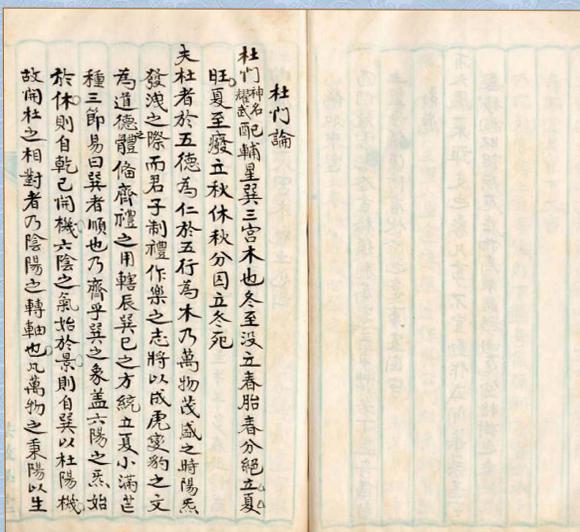 杜门論
杜门神名耀武配輔星巽三宫木也冬至没立春胎春分絕立夏
旺夏至癈立秋休秋分囚立冬死
夫杜者於五德為仁於五行為木乃萬物茂盛之時陽炁
發洩之際而君子制禮作樂之志將以成虎變豹之文
為道德之體俻齊禮之用轄辰巽巳之方統立夏小滿芒
種三節易曰巽者順也乃齊乎巽之象盖六陽之炁始
於休則自乾已開機六陰之氣始於景則自巽以杜陽機
故開杜之相對者乃陰陽之轉軸也凡萬物之秉陽以生